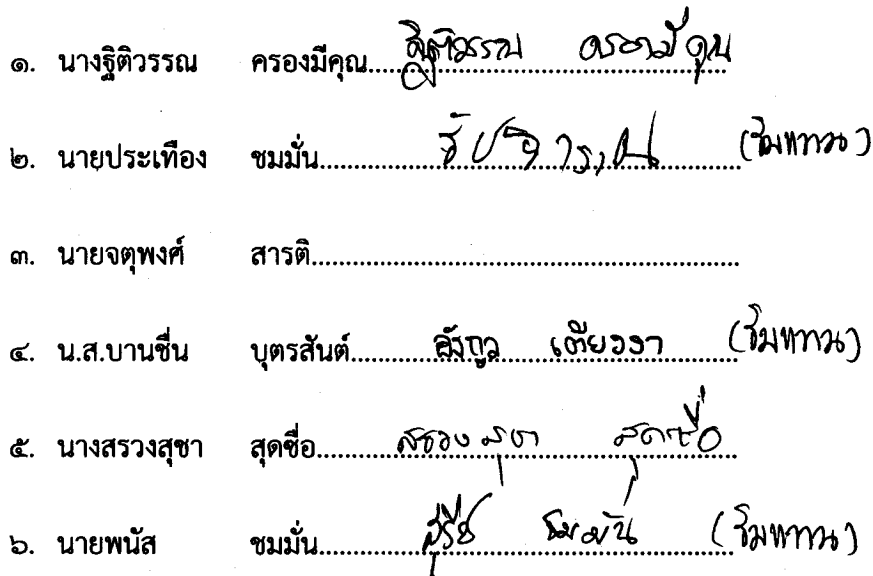 ๑. นางฐิติวรรณ ครองมีคุณ ฐิติวรรณ ครองมีคุณ
๒. นายประเทือง ชมมั่น (รับแทน)
๓. นายจตุพงศ์ สารติ
๔. น.ส.บานชื่น บุตรสันต์ อังกูล เตียวงา (รับแทน)
๕. นางสรวงสุชา สุดซื่อ สรวงสุชา สุดซื่อ
๖. นายพนัส ชมมั่น สุรีย์ ชมมั่น (รับแทน)